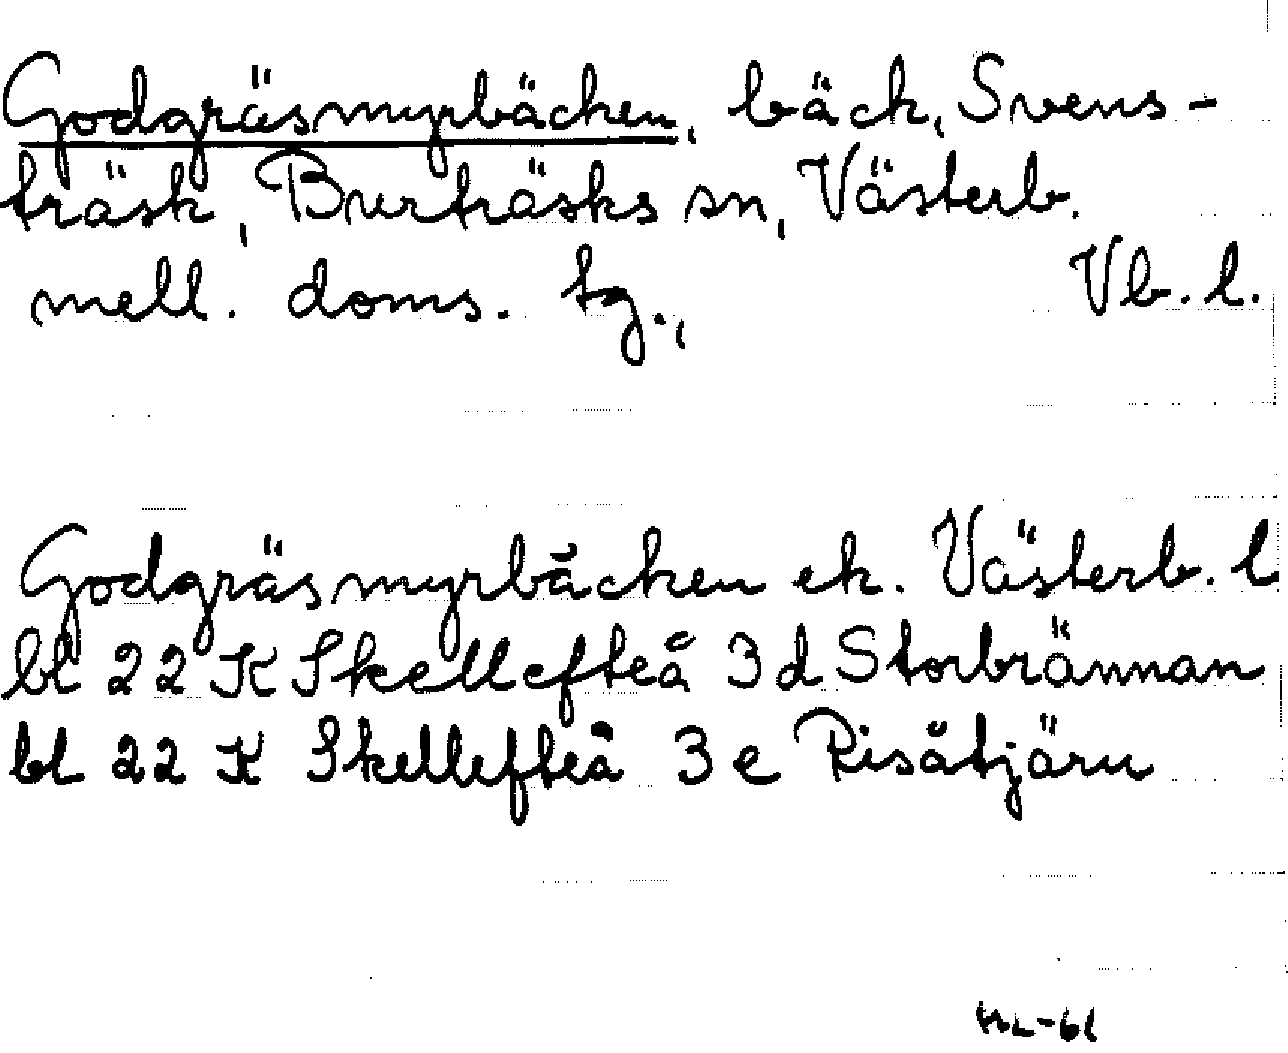 Godgräsmyrbäcken, bäck, Svens-
träsk, Burträsks sn, Västerb.
mell. doms. tg., Vb. l.
Godgräsmyrbäcken ek. Västerb. l.
bl 22 K Skellefteå 3 d Storbrännan
bl 22 K Skellefteå 3 e Risåtjärn